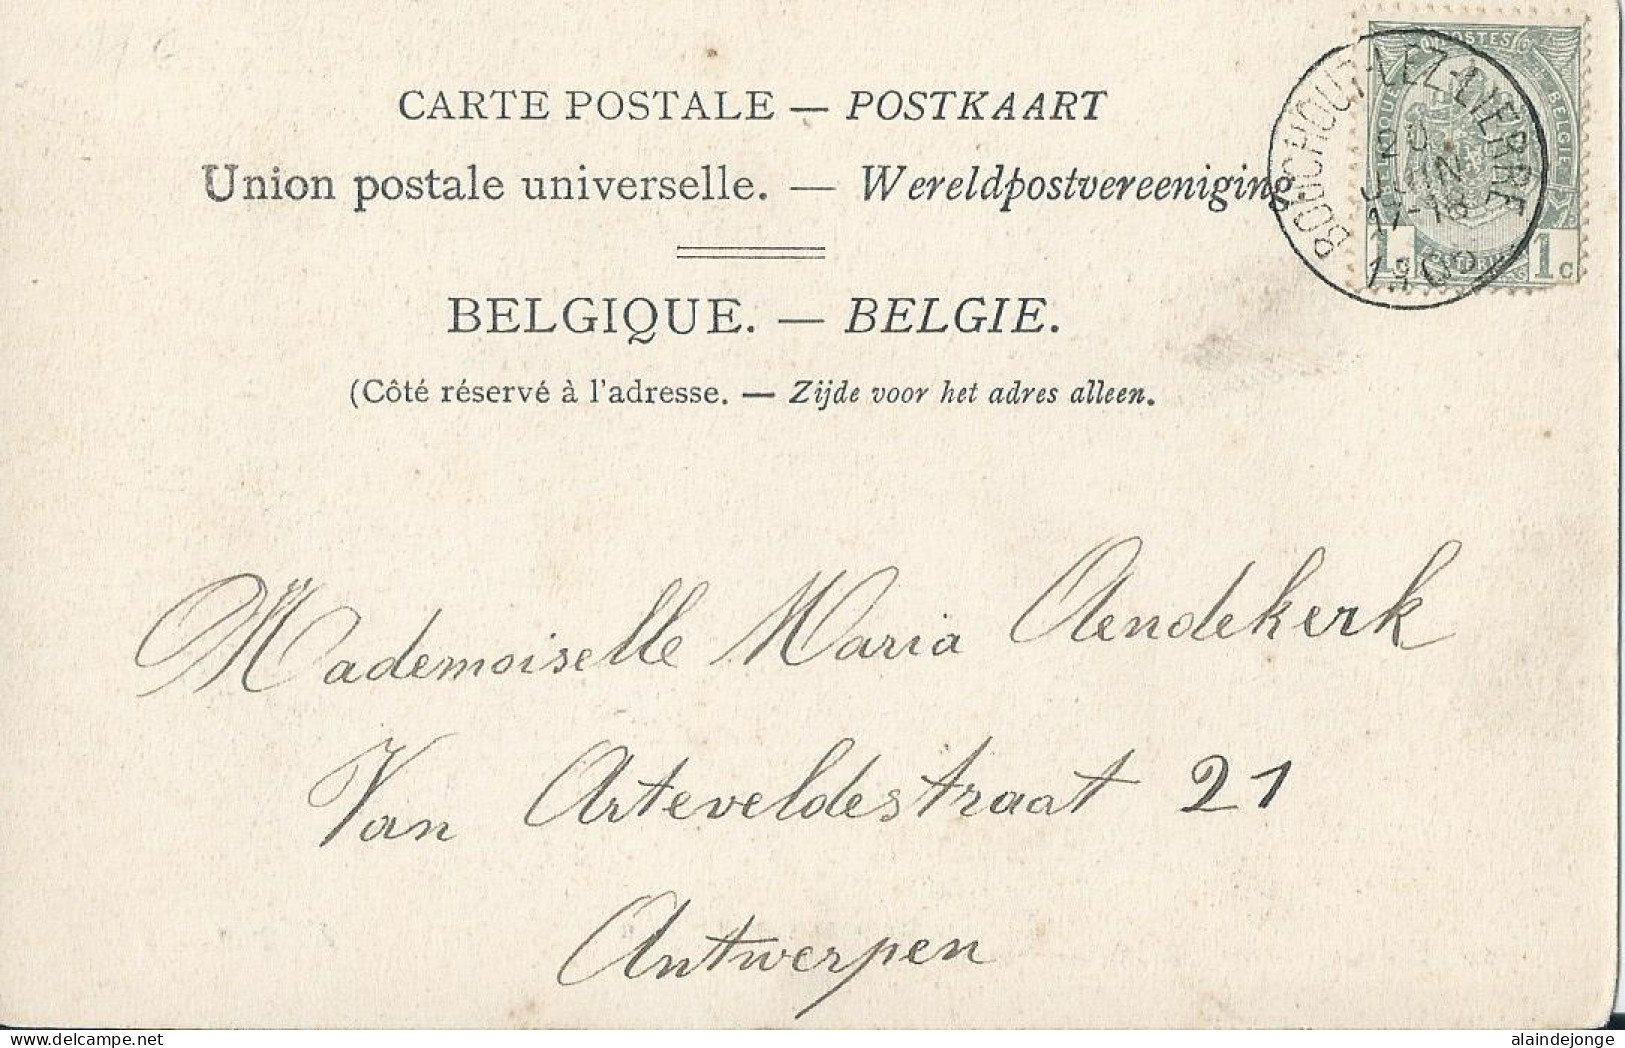 CARTE POSTALE — POSTKAART
Union postale universelle. — Wereldpostvereeniging
BELGIQUE. — BELGIE.
(Côté réservé à l'adresse. — Zijde voor het adres alleen.
POSTES
BELGIE
1c
BOUCHOUT-LEZ-LIERRE
20
JUIN
17-18
Mademoiselle Maria Aendekerk
Van Arteveldestraat 21
Antwerpen
alaindejonge